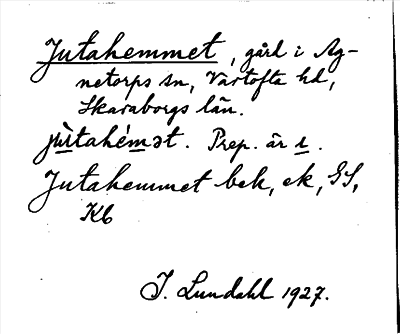 Jutahemmet, gård i Ag-
netorps sn, Vartofta hd,
Skaraborgs län.
jùtahémət. Prep. är ı.
Jutahemmet bek, ek, GS,
Kb
I. Lundahl 1927.